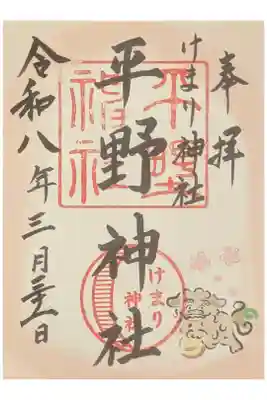 奉拝
けまり神社
平野神社
令和八年三月二十一日
平野神社
けまり
神社